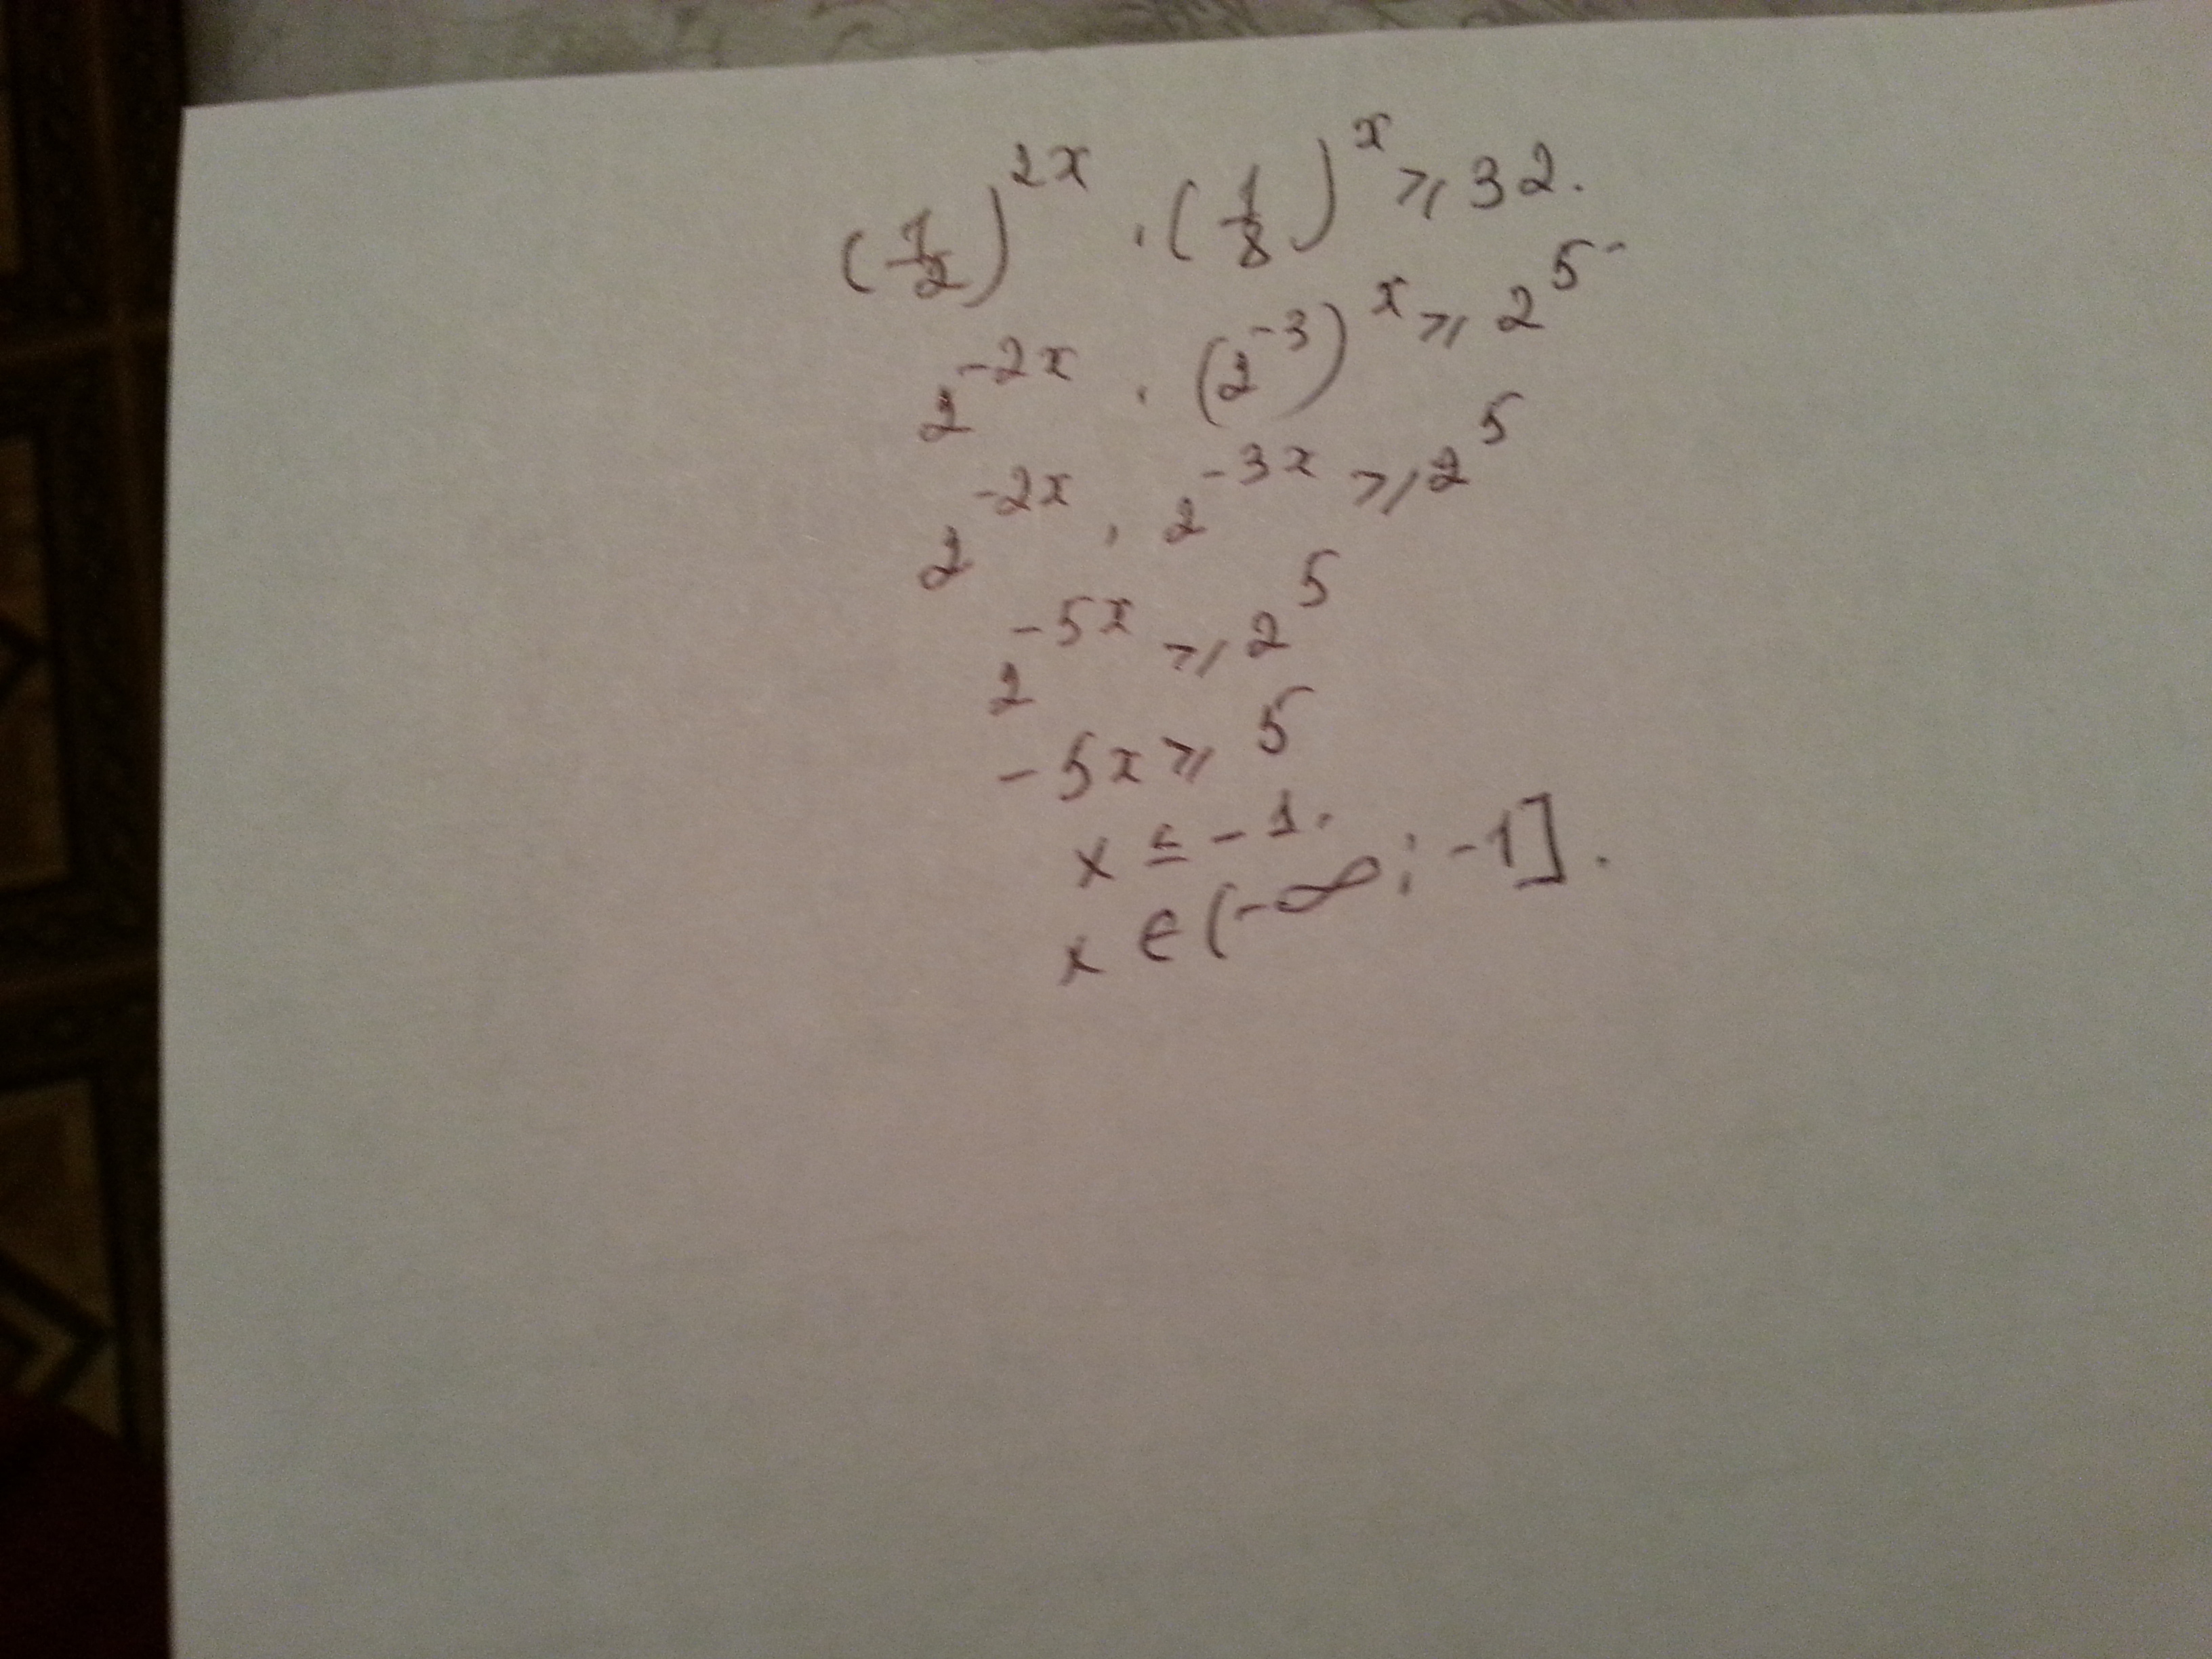 (1/2)^2x · (1/8)^x ⩾ 32.
2^-2x · (2^-3)^x ⩾ 2^5.
2^-2x · 2^-3x ⩾ 2^5
2^-5x ⩾ 2^5
-5x ⩾ 5
x ≤ -1.
x ∈ (-∞; -1].